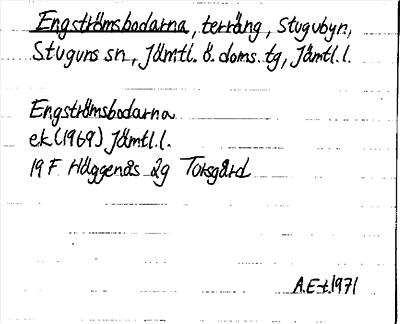 Engströmsbodarna, terräng, Stugubyn,
Stuguns sn, Jämtl. ö. doms. tg, Jämtl. l.
Engströmsbodarna
ek (1969) Jämtl. l.
19 F Häggenås 2g Torsgård
A.E-t.1971